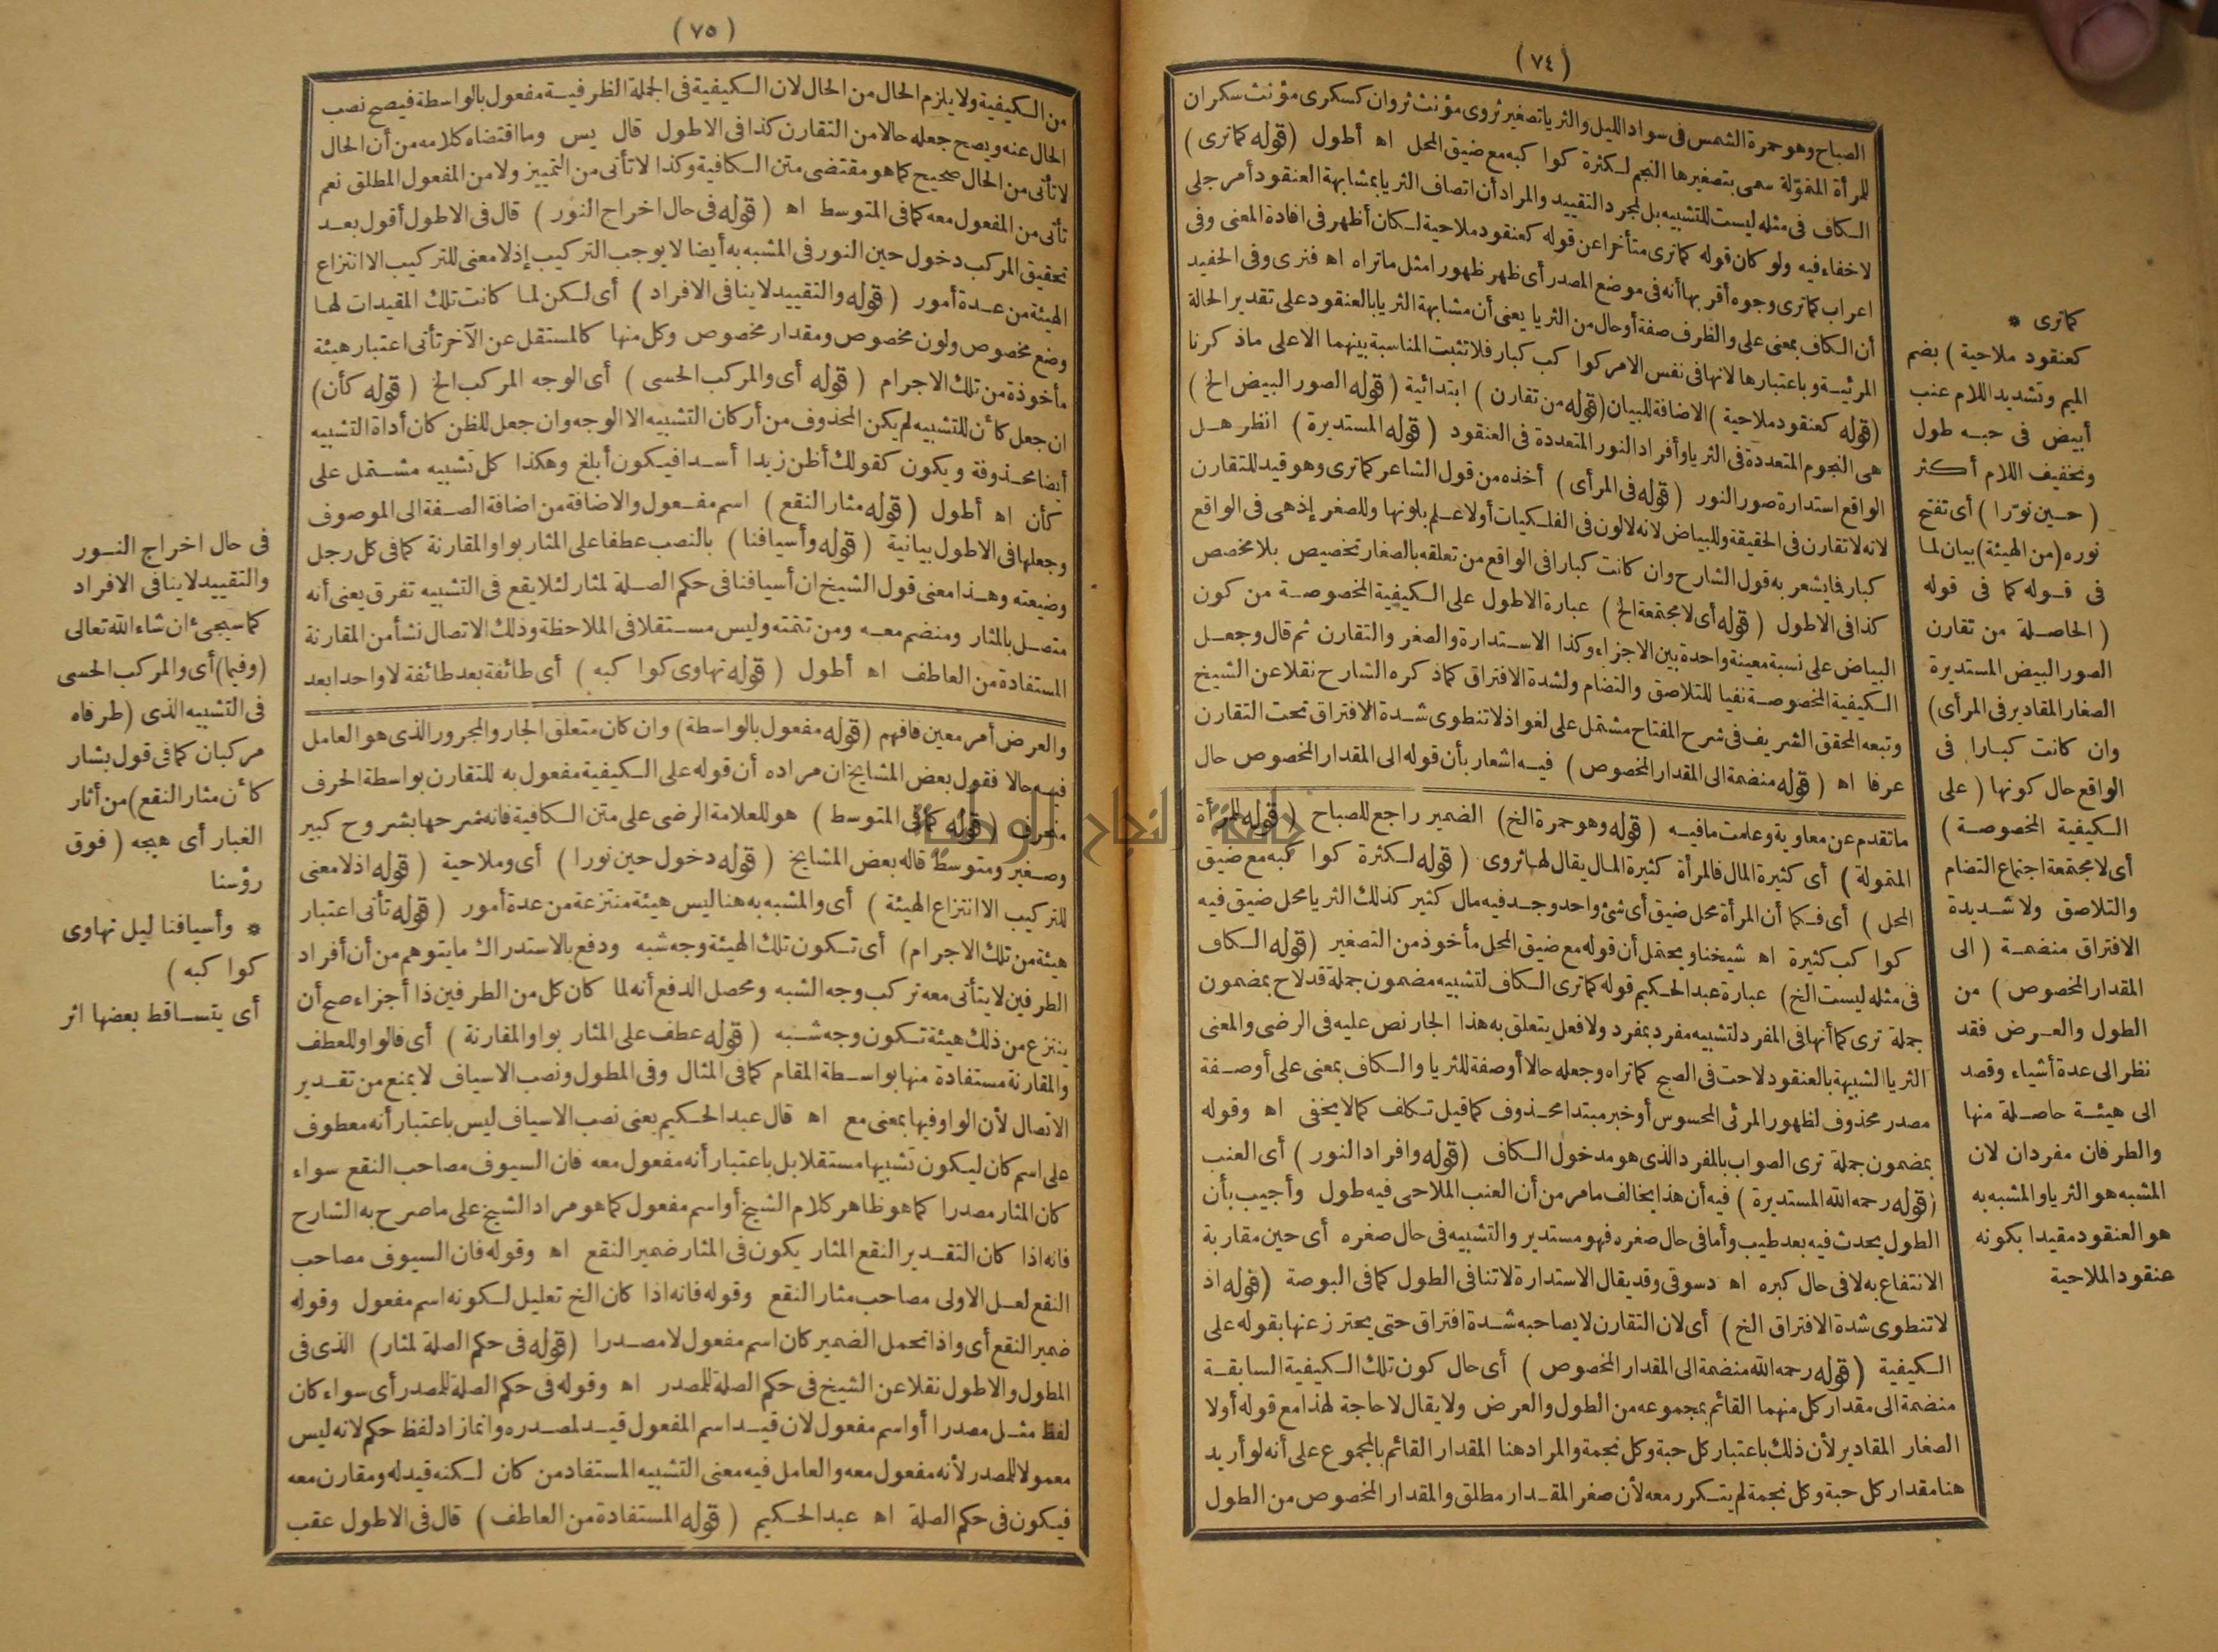 (٧٤)
الصباح وهو حمرة الشمس فى سواد الليل والثريا تصغير ثروى مؤنث ثروان كسكرى مؤنث سكران
للمرأة المتموّلة سمى بتصغيرها النجم لكثرة كوا كبه مع ضيق المحل اه أطول (قوله كماترى)
الكاف فى مثله ليست للتشبيه بل لمجرد التقييد والمراد أن اتصاف الثريا بمشابهة العنقود أمر جلى
لاخفاء فيه ولو كان قوله كماترى متأخرا عن قوله كعنقود ملاحية لكان أظهر فى افادة المعنى وفى
اعراب كماترى وجوه أقربها أنه فى موضع المصدر أى ظهر ظهورا مثل ماتراه اه فنرى وفى الحفيد
أن الكاف بمعنى على والظرف صفة أو حال من الثريا يعنى أن مشابهة الثريا بالعنقود على تقدير الحالة
المرئية وباعتبارها لانها فى نفس الامر كوا كب كبار فلا تثبت المناسبة بينهما الاعلى ماذ كرنا
(قوله كعنقود ملاحية) الاضافة للبيان (قوله من تقارن) ابتدائية (قوله الصور البيض الخ)
هى النجوم المتعددة فى الثريا وأفراد النور المتعددة فى العنقود (قوله المستديرة) انظر هل
الواقع استدارة صور النور (قوله فى المرأى) أخذه من قول الشاعر كماترى وهو قيد للتقارن
لانه لا تقارن فى الحقيقة وللبياض لانه لا لون فى الفلكيات أولا علم بلونها وللصغر إذ هى فى الواقع
كبار فما يشعر به قول الشارح وان كانت كبارا فى الواقع من تعلقه بالصغار تخصيص بلا مخصص
كذا فى الاطول (قوله أى لا مجتمعة الخ) عبارة الاطول على الكيفية المخصوصة من كون
البياض على نسبة معينة واحدة بين الاجزاء وكذا الاستدارة والصغر والتقارن ثم قال وجعل
الكيفية المخصوصة نفيا للتلاصق والتضام ولشدة الافتراق كماذ كره الشارح نقلا عن الشيخ
وتبعه المحقق الشريف فى شرح المفتاح مشتمل على لغو اذ لا تنطوى شدة الافتراق تحت التقارن
عرفا اه (قوله منضمة الى المقدار المخصوص) فيه اشعار بأن قوله الى المقدار المخصوص حال
ماتقدم عن معاوية وعلمت مافيه (قوله وهو حمرة الخ) الضمير راجع للصباح (قوله للمرأة
المتمولة) أى كثيرة المال فالمرأة كثيرة المال يقال لها ثروى (قوله لكثرة كوا كبه مع ضيق
المحل) أى فكما أن المرأة محل ضيق أى شئ واحد وجد فيه مال كثير كذلك الثريا محل ضيق فيه
كوا كب كثيرة اه شيخنا ويحتمل أن قوله مع ضيق المحل مأخوذ من التصغير (قوله الكاف
فى مثله ليست الخ) عبارة عبد الحكيم قوله كماترى الكاف لتشبيه مضمون جملة قد لاح بمضمون
جملة ترى كما أنها فى المفرد لتشبيه مفرد بمفرد ولا فعل يتعلق به هذا الجار نص عليه فى الرضى والمعنى
الثريا الشبيهة بالعنقود لاحت فى الصبح كماتراه وجعله حالا أو صفة للثريا والكاف بمعنى على أو صفة
مصدر محذوف لظهور المرئى المحسوس أو خبر مبتدا محذوف كما قيل تكلف كما لا يخفى اه وقوله
بمضمون جملة ترى الصواب بالمفرد الذى هو مدخول الكاف (قوله وافراد النور) أى العنب
(قوله رحمه الله المستديرة) فيه أن هذا يخالف مامر من أن العنب الملاحى فيه طول وأجيب بأن
الطول يحدث فيه بعد طيب وأما فى حال صغره فهو مستدير والتشبيه فى حال صغره أى حين مقاربة
الانتفاع به لا فى حال كبره اه دسوقى وقد يقال الاستدارة لا تنافى الطول كما فى البوصة (قوله اذ
لا تنطوى شدة الافتراق الخ) أى لان التقارن لا يصاحبه شدة افتراق حتى يحترز عنها بقوله على
الكيفية (قوله رحمه الله منضمة الى المقدار المخصوص) أى حال كون تلك الكيفية السابقة
منضمة الى مقدار كل منهما القائم بمجموعه من الطول والعرض ولا يقال لا حاجة لهذا مع قوله أولا
الصغار المقادير لأن ذلك باعتبار كل حبة وكل نجمة والمراد هنا المقدار القائم بالمجموع على أنه لو أريد
هنا مقدار كل حبة وكل نجمة لم يتكرر معه لأن صغر المقدار مطلق والمقدار المخصوص من الطول
كماترى *
كعنقود ملاحية) بضم
الميم وتشديد اللام عنب
أبيض فى حبه طول
وتخفيف اللام أكثر
(حين نوّرا) أى تفتح
نوره (من الهيئة) بيان لما
فى قوله كما فى قوله
(الحاصلة من تقارن
الصور البيض المستديرة
الصغار المقادير فى المرأى)
وان كانت كبارا فى
الواقع حال كونها (على
الكيفية المخصوصة)
أى لا مجتمعة اجتماع التضام
والتلاصق ولا شديدة
الافتراق منضمة (الى
المقدار المخصوص) من
الطول والعرض فقد
نظر الى عدة أشياء وقصد
الى هيئة حاصلة منها
والطرفان مفردان لان
المشبه هو الثريا والمشبه به
هو العنقود مقيدا بكونه
عنقود الملاحية
(٧٥)
من الكيفية ولا يلزم الحال من الحال لان الكيفية فى الجملة الظرفية مفعول بالواسطة فيصح نصب
الحال عنه ويصح جعله حالا من التقارن كذا فى الاطول قال يس وما اقتضاه كلامه من أن الحال
لا تأتى من الحال صحيح كما هو مقتضى متن الكافية وكذا لا تأتى من التمييز ولا من المفعول المطلق نعم
تأتى من المفعول معه كما فى المتوسط اه (قوله فى حال اخراج النور) قال فى الاطول أقول بعد
تحقيق المركب دخول حين النور فى المشبه به أيضا لا يوجب التركيب إذ لا معنى للتركيب الا انتزاع
الهيئة من عدة أمور (قوله والتقييد لا ينافى الافراد) أى لكن لما كانت تلك المقيدات لها
وضع مخصوص ولون مخصوص ومقدار مخصوص وكل منها كالمستقل عن الآخر تأتى اعتبار هيئة
مأخوذة من تلك الاجرام (قوله أى والمركب الحسى) أى الوجه المركب الخ (قوله كأن)
ان جعل كأن للتشبيه لم يكن المحذوف من أركان التشبيه الا الوجه وان جعل للظن كان أداة التشبيه
أيضا محذوفة ويكون كقولك أظن زيدا أسدا فيكون أبلغ وهكذا كل تشبيه مشتمل على
كأن اه أطول (قوله مثار النقع) اسم مفعول والاضافة من اضافة الصفة الى الموصوف
وجعلها فى الاطول بيانية (قوله وأسيافنا) بالنصب عطفا على المثار بواو المقارنة كما فى كل رجل
وضيعته وهذا معنى قول الشيخ ان أسيافنا فى حكم الصلة لمثار لئلا يقع فى التشبيه تفرق يعنى أنه
متصل بالمثار ومنضم معه ومن تتمته وليس مستقلا فى الملاحظة وذلك الاتصال نشأ من المقارنة
المستفادة من العاطف اه أطول (قوله تهاوى كوا كبه) أى طائفة بعد طائفة لا واحدا بعد
والعرض أمر معين فافهم (قوله مفعول بالواسطة) وان كان متعلق الجار والمجرور الذى هو العامل
فيه حالا فقول بعض المشايخ ان مراده أن قوله على الكيفية مفعول به للتقارن بواسطة الحرف
منحرف (قوله كما فى المتوسط) هو للعلامة الرضى على متن الكافية فانه شرحها بشروح كبير
وصغير ومتوسط قاله بعض المشايخ (قوله دخول حين نورا) أى وملاحية (قوله اذ لا معنى
للتركيب الا انتزاع الهيئة) أى والمشبه به هنا ليس هيئة منتزعة من عدة أمور (قوله تأتى اعتبار
هيئة من تلك الاجرام) أى تكون تلك الهيئة وجه شبه ودفع بالاستدراك مايتوهم من أن أفراد
الطرفين لا يتأتى معه تركب وجه الشبه ومحصل الدفع أنه لما كان كل من الطرفين ذا أجزاء صح أن
ينتزع من ذلك هيئة تكون وجه شبه (قوله عطف على المثار بواو المقارنة) أى فالواو للعطف
والمقارنة مستفادة منها بواسطة المقام كما فى المثال وفى المطول ونصب الاسياف لا يمنع من تقدير
الاتصال لأن الواو فيها بمعنى مع اه قال عبد الحكيم يعنى نصب الاسياف ليس باعتبار أنه معطوف
على اسم كان ليكون تشبيها مستقلا بل باعتبار أنه مفعول معه فان السيوف مصاحب النقع سواء
كان المثار مصدرا كما هو ظاهر كلام الشيخ أو اسم مفعول كما هو مراد الشيخ على ماصرح به الشارح
فانه اذا كان التقدير النقع المثار يكون فى المثار ضمير النقع اه وقوله فان السيوف مصاحب
النقع لعل الاولى مصاحب مثار النقع وقوله فانه اذا كان الخ تعليل لكونه اسم مفعول وقوله
ضمير النقع أى واذا تحمل الضمير كان اسم مفعول لا مصدرا (قوله فى حكم الصلة لمثار) الذى فى
المطول والاطول نقلا عن الشيخ فى حكم الصلة للمصدر اه وقوله فى حكم الصلة للمصدر أى سواء كان
لفظ مثل مصدرا أو اسم مفعول لان قيد اسم المفعول قيد لمصدره وانما زاد لفظ حكم لانه ليس
معمولا للمصدر لأنه مفعول معه والعامل فيه معنى التشبيه المستفاد من كان لكنه قيد له ومقارن معه
فيكون فى حكم الصلة اه عبد الحكيم (قوله المستفادة من العاطف) قال فى الاطول عقب
فى حال اخراج النور
والتقييد لا ينافى الافراد
كما سيجىء ان شاء الله تعالى
(وفيما) أى والمركب الحسى
فى التشبيه الذى (طرفاه
مركبان كما فى قول بشار
كأن مثار النقع) من أثار
الغبار أى هيجه (فوق
رؤسنا
* وأسيافنا ليل تهاوى
كوا كبه)
أى يتساقط بعضها اثر
جامعة النجاح الوطنية